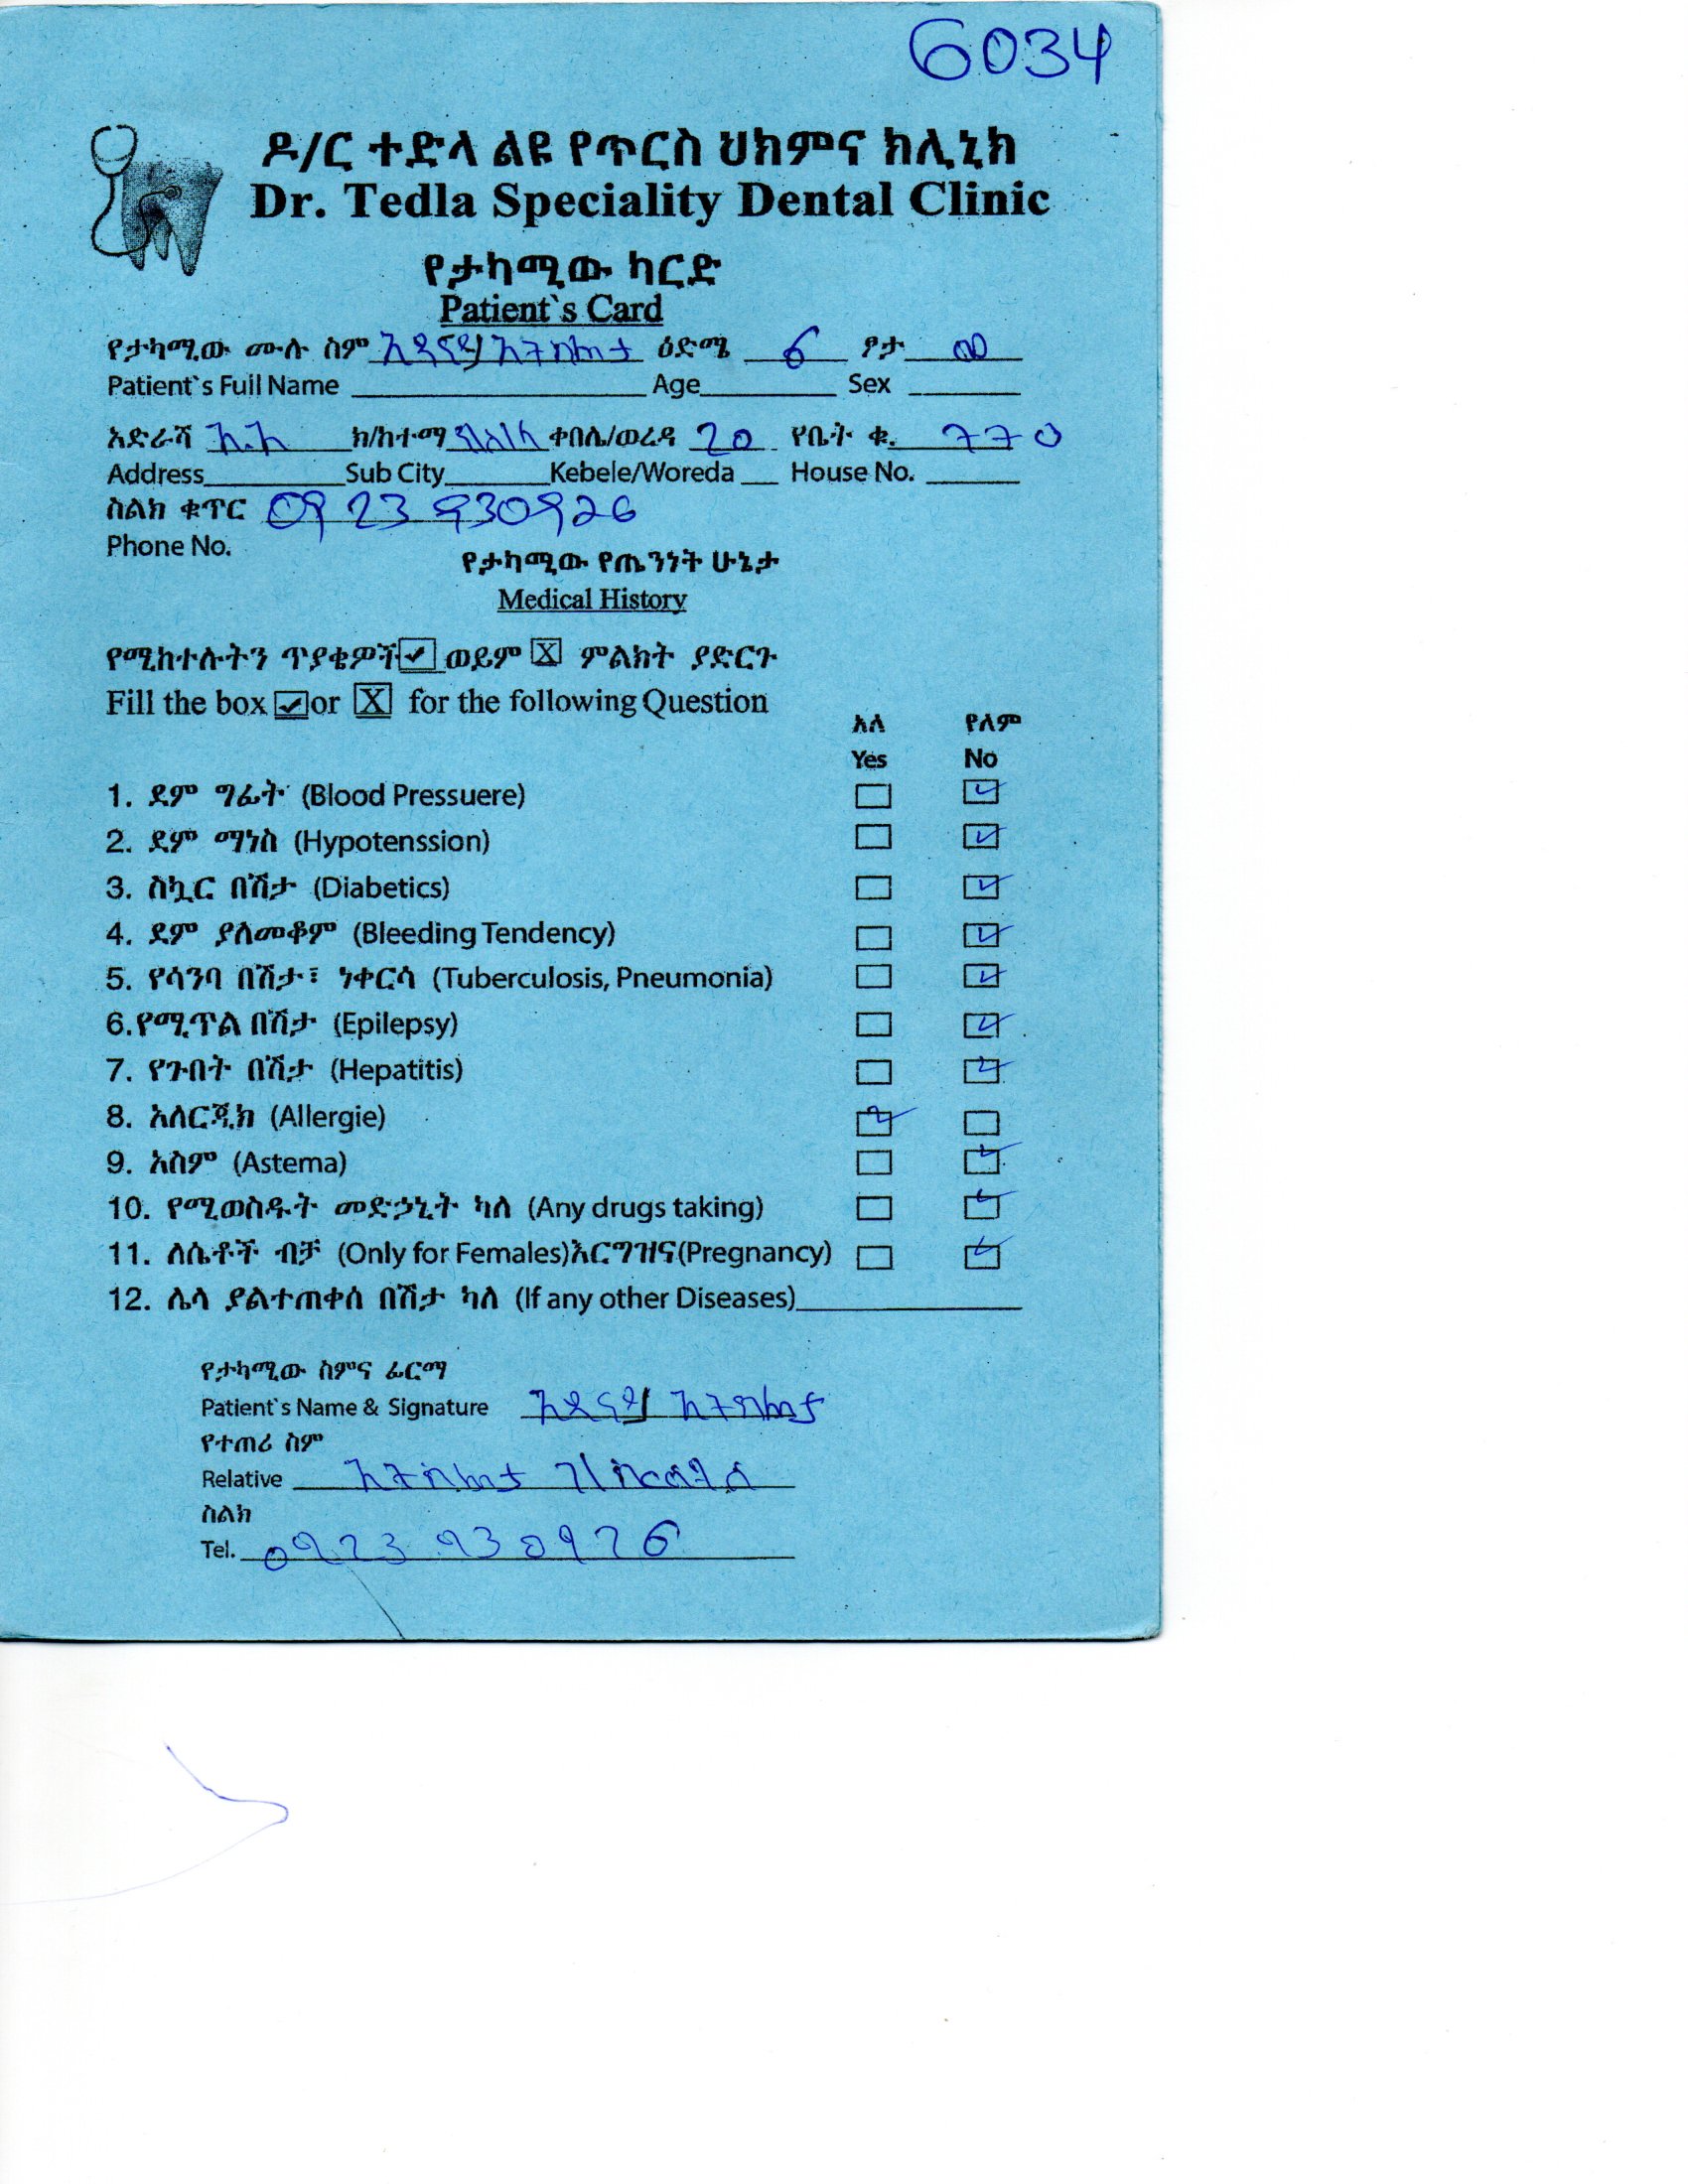 6034
ዶ/ር ተድላ ልዩ የጥርስ ህክምና ክሊኒክ
Dr. Tedla Speciality Dental Clinic
የታካሚው ካርድ
Patient`s Card
የታካሚው ሙሉ ስም ዕድሜ 6 ፆታ ወ
Patient`s Full Name Age Sex
አድራሻ አ.አ ክ/ከተማ ቀበሌ/ወረዳ 20 የቤት ቁ. 770
Address Sub City Kebele/Woreda House No.
ስልክ ቁጥር 0923930926
Phone No.
የታካሚው የጤንነት ሁኔታ
Medical History
የሚከተሉትን ጥያቄዎች ✓ ወይም X ምልክት ያድርጉ
Fill the box ✓ or X for the following Question
አለ የለም
Yes No
1. ደም ግፊት (Blood Pressuere) ✓
2. ደም ማነስ (Hypotenssion) ✓
3. ስኳር በሽታ (Diabetics) ✓
4. ደም ያለመቆም (Bleeding Tendency) ✓
5. የሳንባ በሽታ፣ ነቀርሳ (Tuberculosis, Pneumonia) ✓
6.የሚጥል በሽታ (Epilepsy) ✓
7. የጉበት በሽታ (Hepatitis) ✓
8. አለርጂክ (Allergie) ✓
9. አስም (Astema) ✓
10. የሚወስዱት መድኃኒት ካለ (Any drugs taking) ✓
11. ለሴቶች ብቻ (Only for Females)እርግዝና(Pregnancy) ✓
12. ሌላ ያልተጠቀሰ በሽታ ካለ (If any other Diseases)
የታካሚው ስምና ፊርማ
Patient`s Name & Signature
የተጠሪ ስም
Relative
ስልክ
Tel. 0923 930926